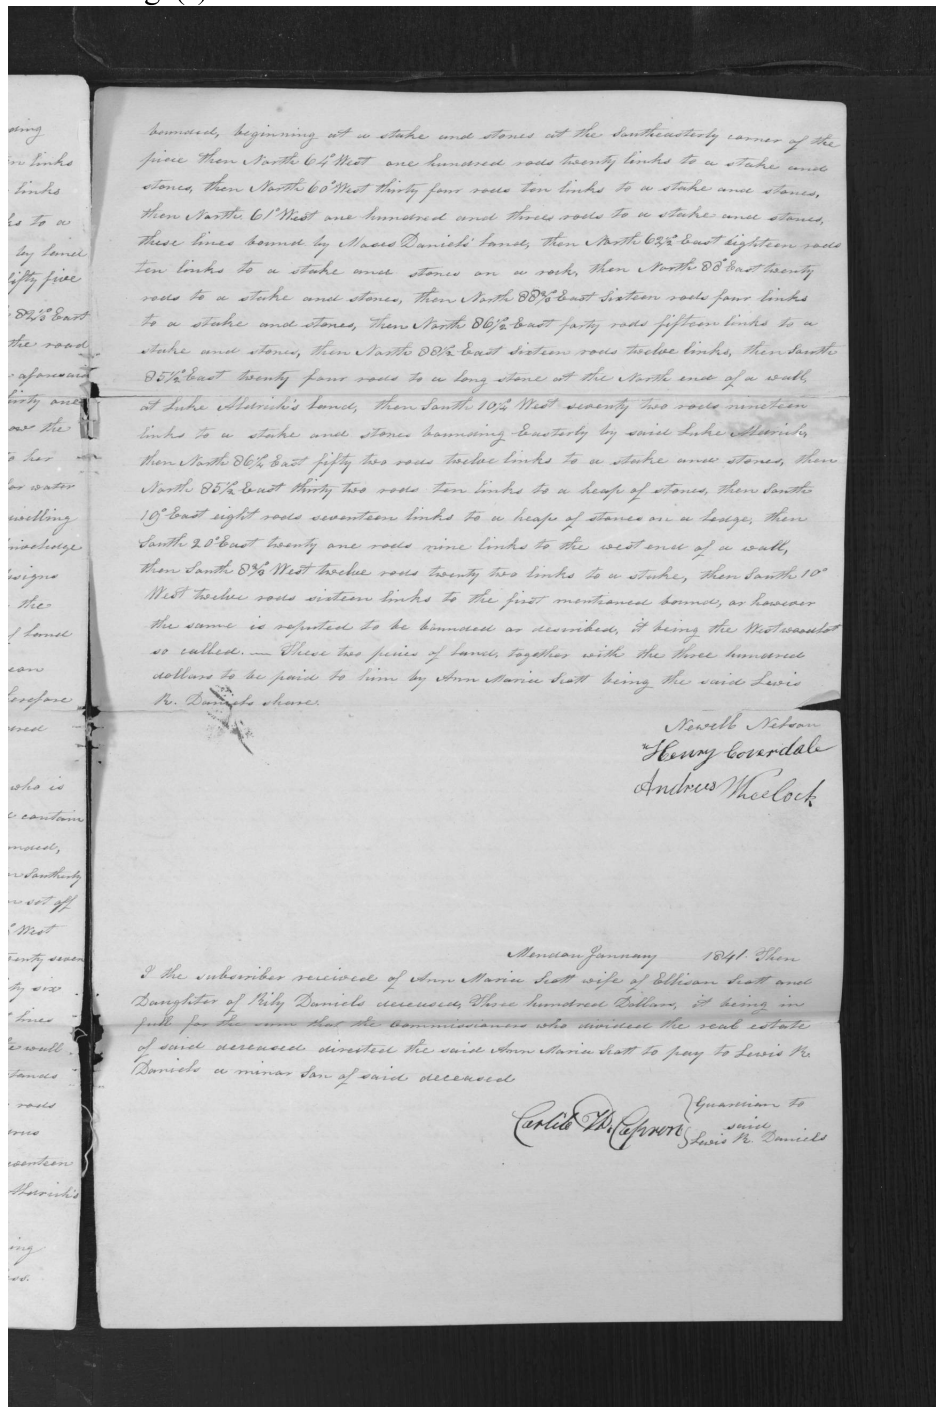 ding
n links
links
ks to a
by land
fifty five
82½° East
the road
aforesaid
thirty one
ow the
to her
for water
dwelling
priveledge
assigns
the
of land
herefore
ered
who is
contain
Southerly
set off
West
twenty seven
ty six
lines
wall
tands
rods
seventeen
Aldrich's
ing
bounded, beginning at a stake and stones at the Southeasterly corner of the
piece then North 64° West one hundred rods twenty links to a stake and
stones, then North 60° West thirty four rods ten links to a stake and stones,
then North 61° West one hundred and three rods to a stake and stones,
these lines bound by Moses Daniels' land, then North 62½° East eighteen rods
ten links to a stake and stones on a rock, then North 88° East twenty
rods to a stake and stones, then North 88½° East sixteen rods four links
to a stake and stones, then North 86½° East forty rods fifteen links to a
stake and stones, then North 88½ East sixteen rods twelve links, then South
85½° East twenty four rods to a long stone at the North end of a wall,
at Luke Aldrich's land, then South 10½° West seventy two rods nineteen
links to a stake and stones bounding Easterly by said Luke Aldrich,
then North 86½ East fifty two rods twelve links to a stake and stones, then
North 85½ East thirty two rods ten links to a heap of stones, then South
19° East eight rods seventeen links to a heap of stones on a ledge, then
South 20° East twenty one rods nine links to the west end of a wall,
then South 8½° West twelve rods twenty two links to a stake, then South 10°
West twelve rods sixteen links to the first mentioned bound, or however
the same is reputed to be bounded or described, it being the West woodlot
so called. — These two pieces of land, together with the three hundred
dollars to be paid to him by Ann Maria Scott being the said Lewis
R. Daniels share.
Newell Nelson
Henry Coverdale
Andrews Wheelock
Mendon January 1841. Then
I the subscriber received of Ann Maria Scott wife of Ellison Scott and
Daughter of Rily Daniels deceased, Three hundred Dollars, it being in
full for the sum that the Commissioners who divided the real estate
of said deceased directed the said Ann Maria Scott to pay to Lewis R.
Daniels a minor Son of said deceased
Carlile W. Capron } Guardian to
said
Lewis R. Daniels